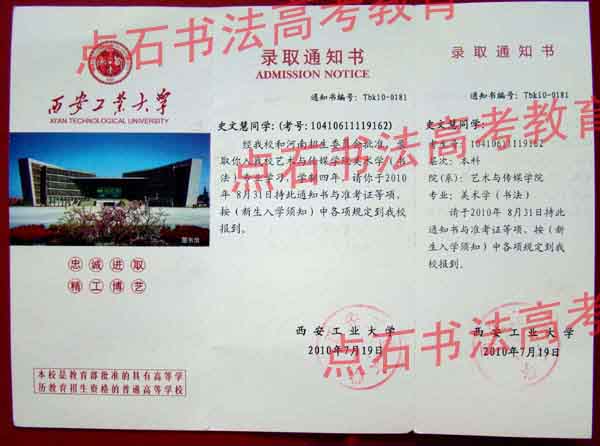 点石书法高考教育
西安工业大学
XI'AN TECHNOLOGICAL UNIVERSITY
图书馆
忠诚进取
精工博艺
本校是教育部批准的具有高等学
历教育招生资格的普通高等学校
录取通知书
ADMISSION NOTICE
通知书编号: Tbk10-0181
史文慧同学:(考号:10410611119162)
经我校和河南招生委员会批准, 录
取你入我校艺术与传媒学院美术学(书
法)专业学习, 学制四年。请你于2010
年 8月31日持此通知书与准考证等项,
按《新生入学须知》中各项规定到我校
报到。
西安工业大学
2010年7月19日
录取通知书
通知书编号: Tbk10-0181
史文慧同学:
考生号:10410611119162
层次: 本科
院(系): 艺术与传媒学院
专业: 美术学(书法)
请于2010年 8月31日持此
通知书与准考证等项, 按《新
生入学须知》中各项规定到我
校报到。
西安工业大学
2010年7月19日
点石书法高考教育
点石书法高考